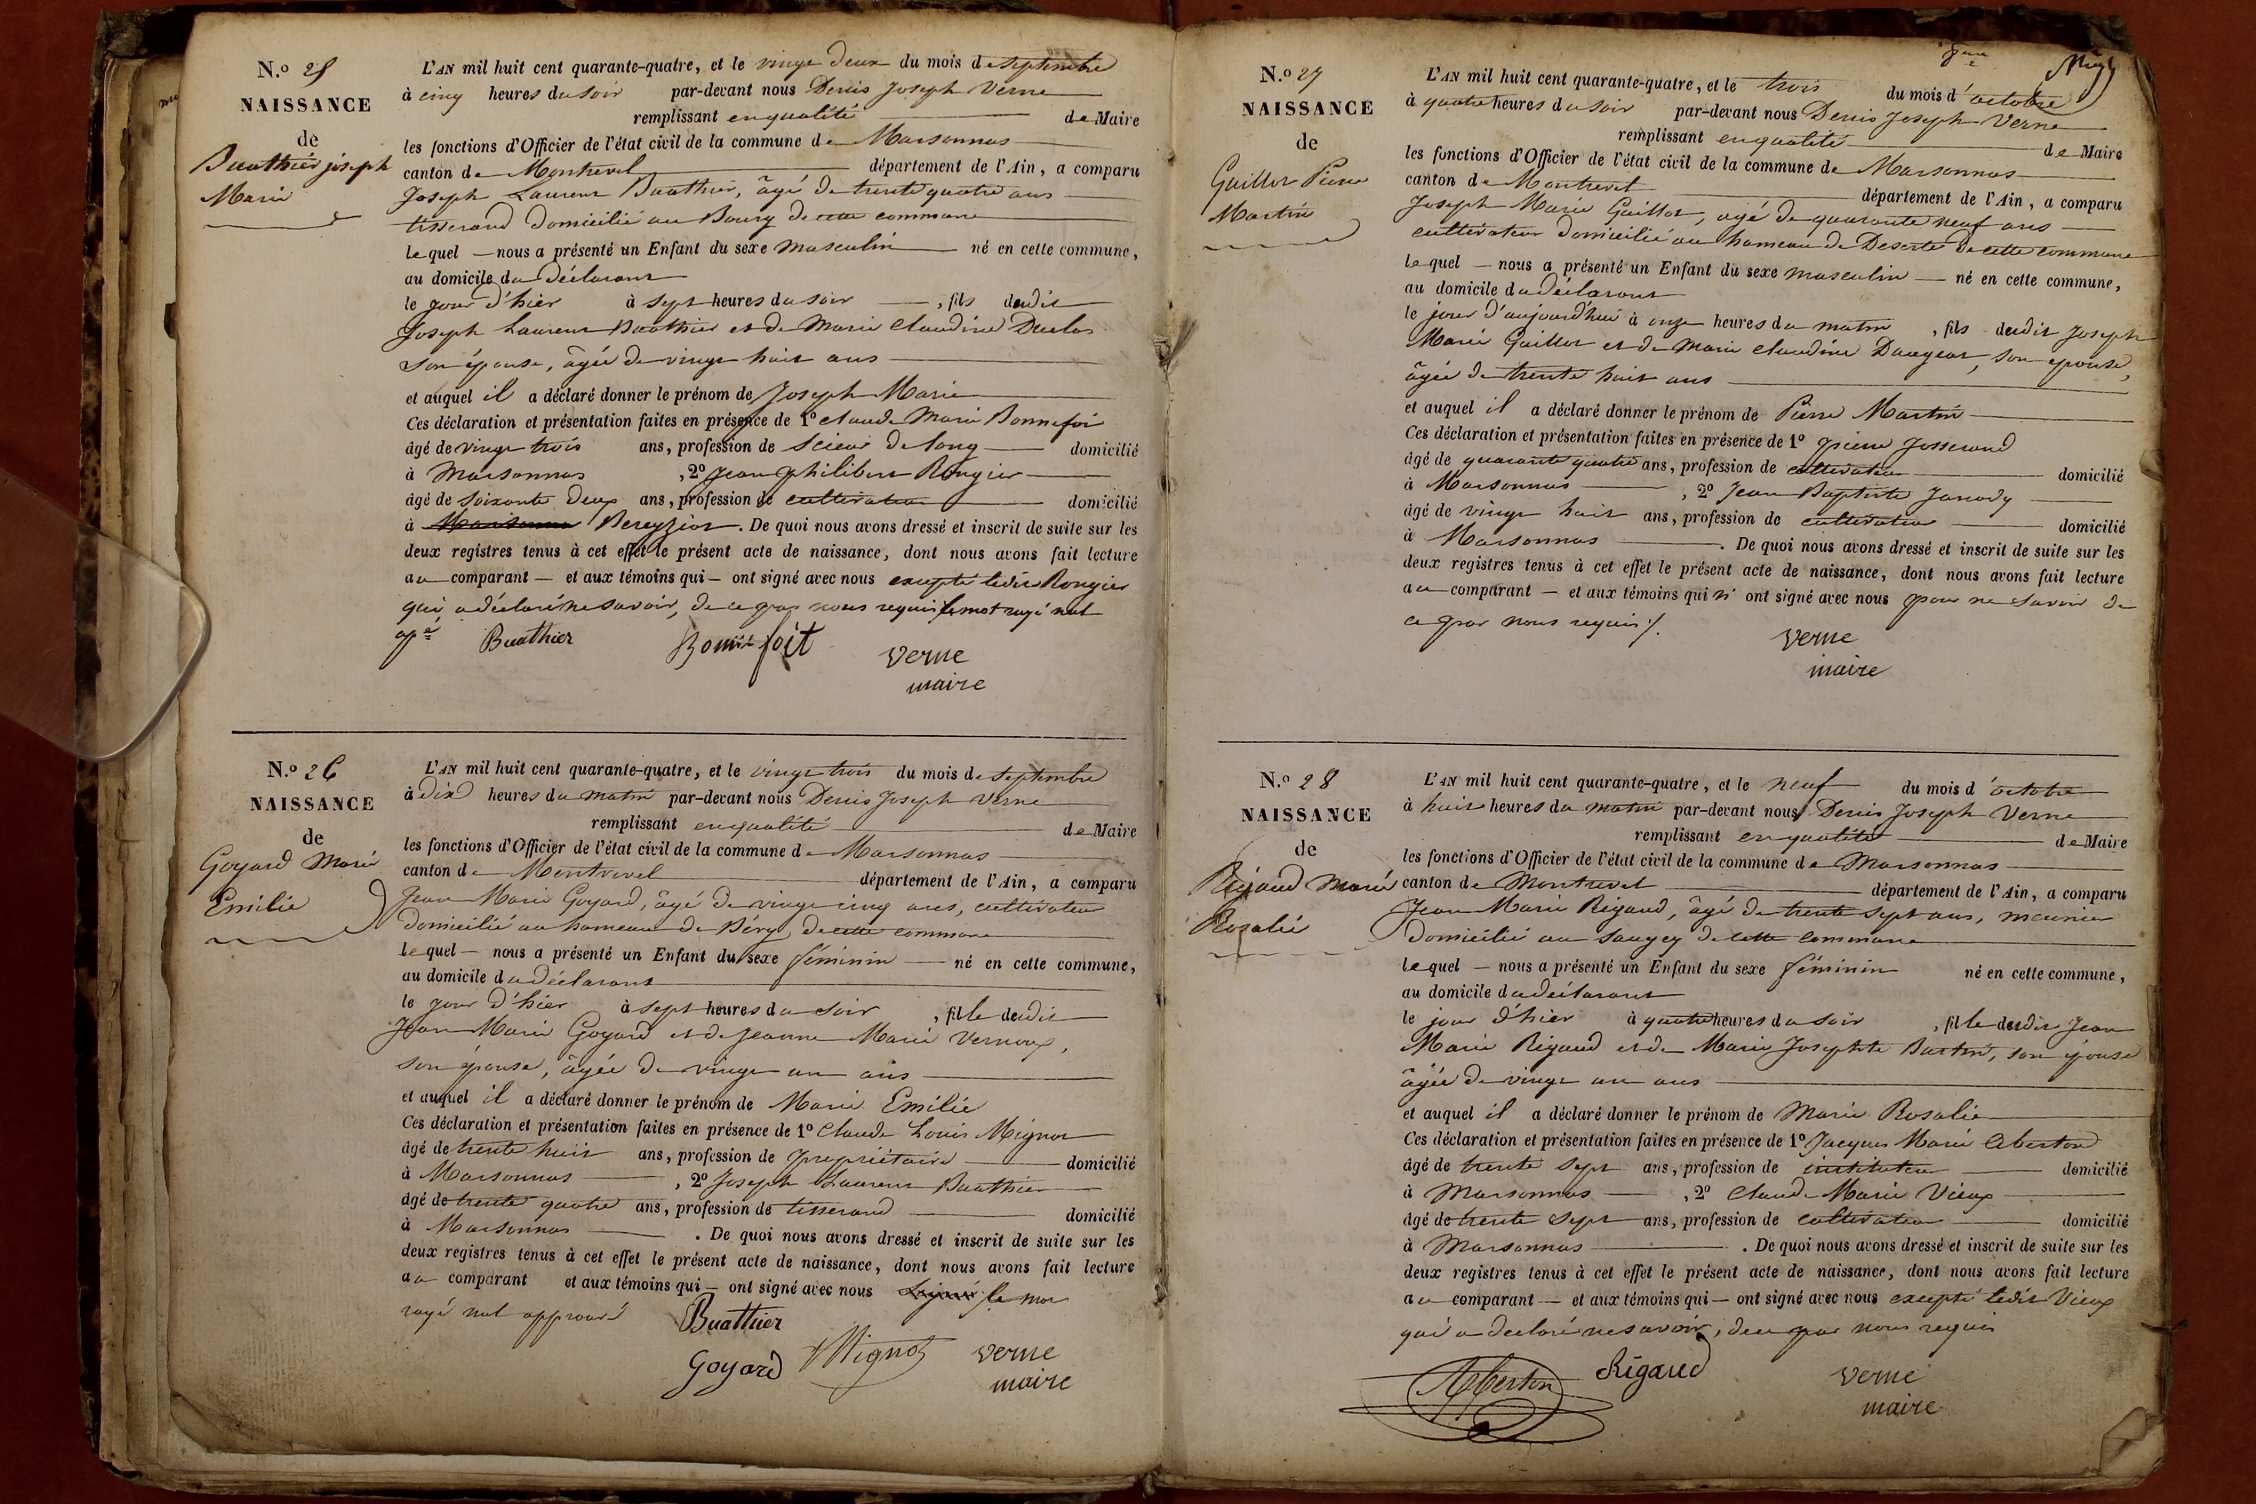 N.o 25
NAISSANCE
de
Buathier joseph
Marie
L'AN mil huit cent quarante-quatre, et le vingt deux du mois de septembre
à cinq heures du soir par-devant nous Denis Joseph Verne
remplissant en qualité de Maire
les fonctions d'Officier de l'état civil de la commune de Marsonnas
canton de Montrevel département de l'Ain, a comparu
Joseph Laurent Buathier, âgé de trente quatre ans
tisserand domicilié au Bourg de cette commune
lequel — nous a présenté un Enfant du sexe masculin né en cette commune,
au domicile du déclarant
le jour d'hier à sept heures du soir, fils dudit
Joseph Laurent Buathier et de Marie Claudine Duclos
son épouse, âgée de vingt huit ans
et auquel il a déclaré donner le prénom de Joseph Marie
Ces déclaration et présentation faites en présence de 1o Claude Marie Bonnefoi
âgé de vingt trois ans, profession de scieur de long domicilié
à Marsonnas, 2o Jean philibert Rongier
âgé de soixante deux ans, profession de cultivateur domicilié
à Marsonnas Bereyziat. De quoi nous avons dressé et inscrit de suite sur les
deux registres tenus à cet effet le présent acte de naissance, dont nous avons fait lecture
au comparant — et aux témoins qui — ont signé avec nous excepté ledit Rongier
qui a déclaré ne savoir, de ce par nous requis le mot rayé nul
Buathier Verne
maire
N.o 26
NAISSANCE
de
Goyard Marie
Emilie
L'AN mil huit cent quarante-quatre, et le vingt trois du mois de septembre
à dix heures du matin par-devant nous Denis Joseph Verne
remplissant en qualité de Maire
les fonctions d'Officier de l'état civil de la commune de Marsonnas
canton de Montrevel département de l'Ain, a comparu
Jean Marie Goyard, âgé de vingt cinq ans, cultivateur
domicilié au hameau de Béry, de cette commune
lequel — nous a présenté un Enfant du sexe féminin — né en cette commune,
au domicile du déclarant
le jour d'hier à sept heures du soir, fille dudit
Jean Marie Goyard et de Jeanne Marie Vernoux,
son épouse, âgée de vingt un ans
et auquel il a déclaré donner le prénom de Marie Emilie
Ces déclaration et présentation faites en présence de 1o Claude Louis Mignot
âgé de trente huit ans, profession de propriétaire domicilié
à Marsonnas, 2o Joseph Laurent Buathier
âgé de trente quatre ans, profession de tisserand domicilié
à Marsonnas. De quoi nous avons dressé et inscrit de suite sur les
deux registres tenus à cet effet le présent acte de naissance, dont nous avons fait lecture
au comparant et aux témoins qui — ont signé avec nous le mot
rayé nul approuvé
Buathier
Goyard Mignot Verne
maire
N.o 27
NAISSANCE
de
Guillot Pierre
Martin
L'AN mil huit cent quarante-quatre, et le trois du mois d'octobre
à quatre heures du soir par-devant nous Denis Joseph Verne
remplissant en qualité de Maire
les fonctions d'Officier de l'état civil de la commune de Marsonnas
canton de Montrevel département de l'Ain, a comparu
Joseph Marie Guillot, âgé de quarante neuf ans
cultivateur domicilié au hameau de Deserte de cette commune
lequel — nous a présenté un Enfant du sexe masculin — né en cette commune,
au domicile du déclarant
le jour d'aujourd'hui à onze heures du matin, fils dudit Joseph
Marie Guillot et de Marie Claudine Daujeat, son épouse,
âgée de trente huit ans
et auquel il a déclaré donner le prénom de Pierre Martin
Ces déclaration et présentation faites en présence de 1o pierre Josserand
âgé de quarante quatre ans, profession de cultivateur domicilié
à Marsonnas, 2o Jean Baptiste Janody
âgé de vingt huit ans, profession de cultivateur domicilié
à Marsonnas. De quoi nous avons dressé et inscrit de suite sur les
deux registres tenus à cet effet le présent acte de naissance, dont nous avons fait lecture
au comparant — et aux témoins qui n' ont signé avec nous pour ne savoir de
ce par nous requis
Verne
maire
N.o 28
NAISSANCE
de
Rigaud Marie
Rosalie
L'AN mil huit cent quarante-quatre, et le neuf du mois d'octobre
à huit heures du matin par-devant nous Denis Joseph Verne
remplissant en qualité de Maire
les fonctions d'Officier de l'état civil de la commune de Marsonnas
canton de Montrevel département de l'Ain, a comparu
Jean Marie Rigaud, âgé de trente sept ans, meunier
domicilié au Saugey de cette commune
lequel — nous a présenté un Enfant du sexe féminin né en cette commune,
au domicile du déclarant
le jour d'hier à quatre heures du soir, fille dudit Jean
Marie Rigaud et de Marie Josephte Burtin, son épouse
âgée de vingt un ans
et auquel il a déclaré donner le prénom de Marie Rosalie
Ces déclaration et présentation faites en présence de 1o Jacques Marie Aberton
âgé de trente sept ans, profession de instituteur domicilié
à Marsonnas, 2o Claude Marie Vieux
âgé de trente sept ans, profession de cultivateur domicilié
à Marsonnas. De quoi nous avons dressé et inscrit de suite sur les
deux registres tenus à cet effet le présent acte de naissance, dont nous avons fait lecture
au comparant — et aux témoins qui — ont signé avec nous excepté ledit Vieux
qui a declaré ne savoir, de ce par nous requis
Aberton Rigaud Verne
maire